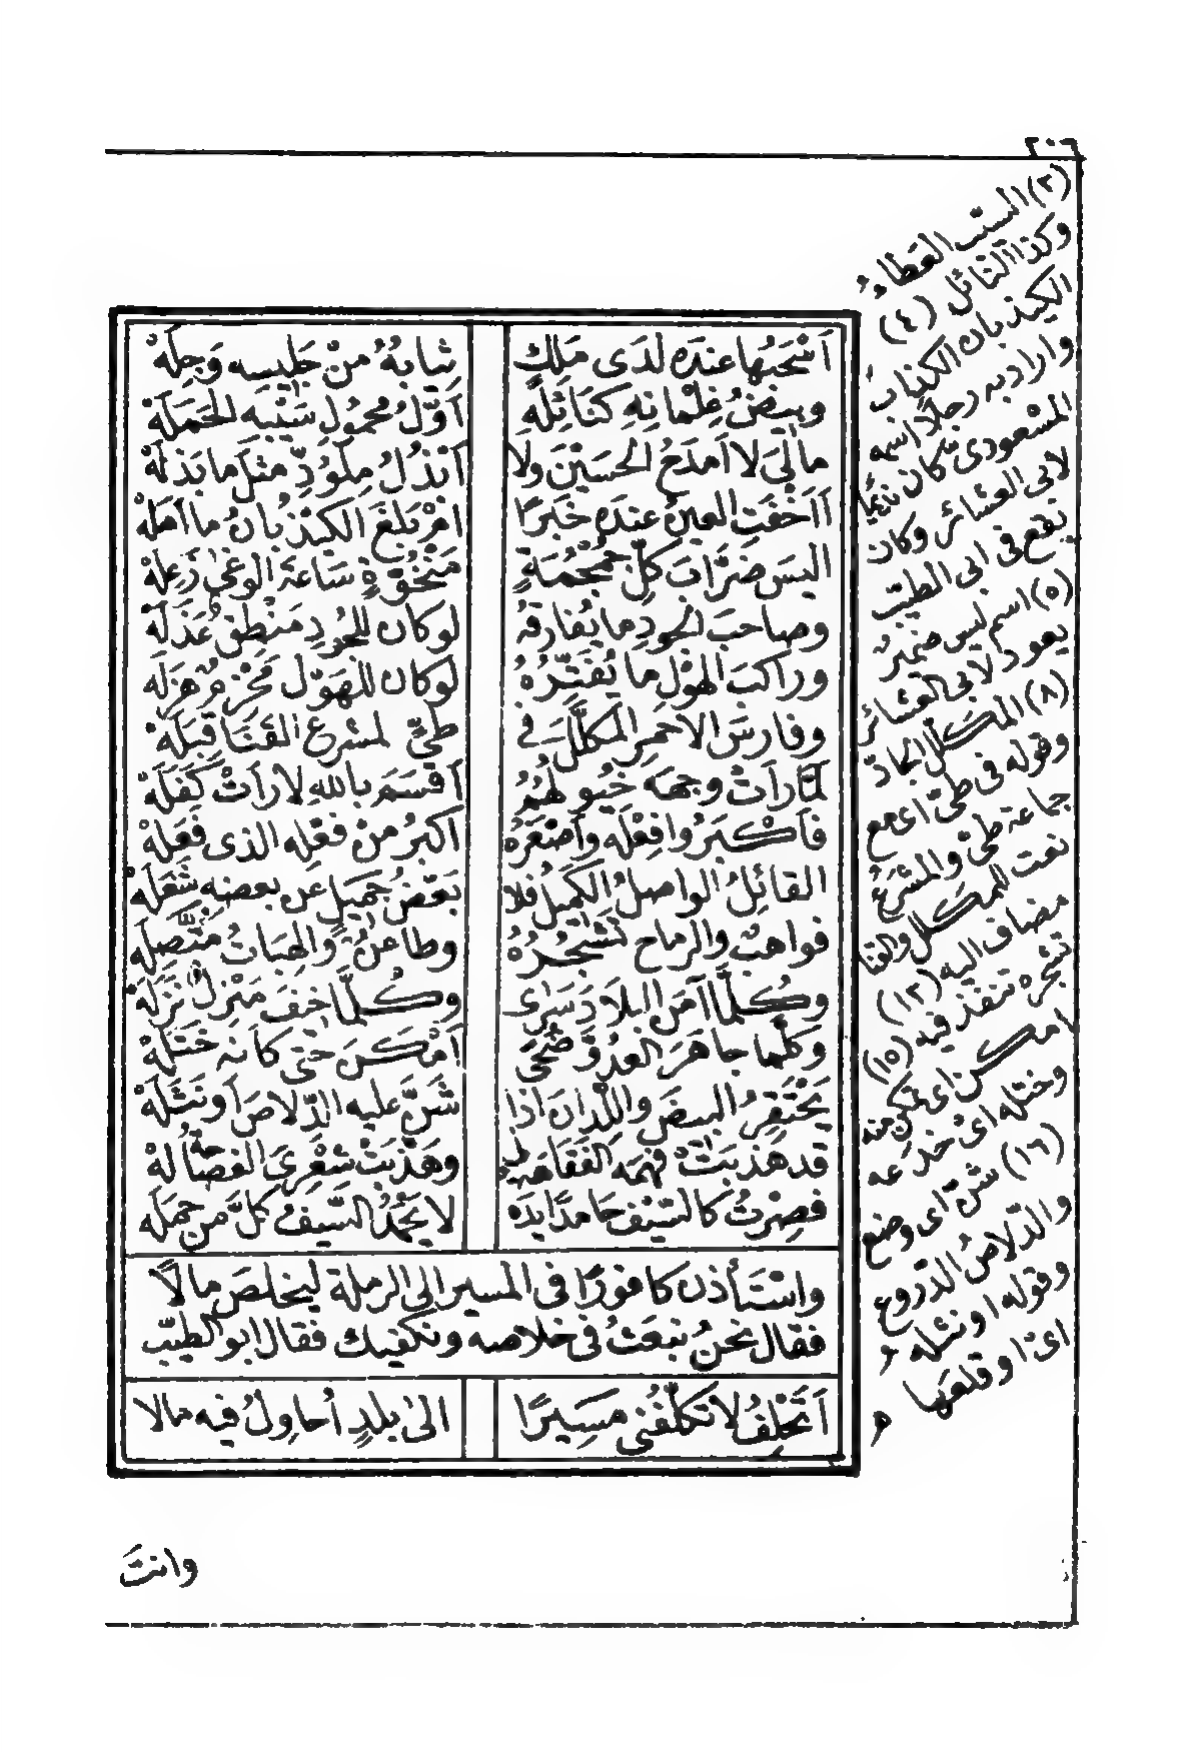 ٢٠٦
أَسْحَبُها عندَه لَدَى مَلِكٍ ثِيابُهُ مِنْ جَليسِه وَجِلَهْ
وبِيضُ غِلْمانِهِ كَنائِلِهِ أَوَّلُ مَحْمُولِ سَيْبِه الحَمَلَهْ
مالِىَ لا أَمدَحُ الحسَيْنَ ولا أَبْذُلُ مِلْوُدِّ مثلَ ما بَذَلَهْ
أَأَخْفَتِ العينُ عندَهِ خَبَرًا امْ بَلَغَ الكَيْذبانُ ما أَمَلَهْ
اليسَ ضرَّابَ كلِّ جُمْجُمَةٍ مَنْخُوَّةٍ سَاعَةَ الوغىٰ زَعِلَهْ
وصاحبَ الجودِ ما يُفارقُه لو كان للجُودِ مَنْطِقٌ عَذَلَهْ
وراكبَ الهوْلِ ما يُفَتِّرُهُ لو كان للهَوْلِ مَحْزِمٌ هزَلَهْ
وفارسَ الاحمرِ المكلِّلَ فى طيِّءٍ لمشرعِ القَنَا قِبَلَهْ
لمّا رأتْ وجهَه خيولهُمُ أَقْسَمَ باللهِ لا رأتْ كَفَلَهْ
فأكْبَرُوا فِعْلَه وأصْغَرُهُ أكبرُ مِنْ فعْلِه الذى فعَلَهْ
القائلُ الواصلُ الكَميلُ فلا بَعْضُ جَميلٍ عن بعضِه شَغَلَهْ
فواهبٌ والرماح تَشْجُرُهُ وطاعنٌ والهِبَاتُ مُتَّصِلَهْ
وكُلَّما آمنَ البلادَ سَرَى وكُلَّما خِيفَ مَنْزِلٌ نَزَلَهْ
وكُلّما جاهَرَ العدُوَّ ضُحًى أمْكنَ حتى كأنّه خَتَلَهْ
يَحْتَقِرُ البيضَ واللّدانَ اذا شَنَّ عليه الدِّلاصَ أو نَثَلَهْ
قد هَذبَتْ فهمَه الفَقَاهَةُ لى وهَذّبَتْ شِعْرِىَ الفصاحةُ لهْ
فصِرْتُ كالسّيْف حَامدًا يدَه لا يَحْمَدُ السّيفُ كلَّ من حمَلَه
واسْتَأذن كافورًا فى المسير الى الرملة ليخلصَ مالًا
فقال نحنُ نبعَثُ فى خلاصه ونكفيك فقال ابو الطيّب
أَتَحْلِفُ لا تكلّفُنى مَسِيرًا الىٰ بلدٍ أُحاوِلُ فيه مالا
وانتَ
(٢) السّيب العَطاءُ
وكذا النّائل (٤)
الكيذبان الكذابُ
واراد به رجلًا اسمه
المسْعودى كان نديمًا
لابى العشائر وكان
يقع فى ابى الطيّب
(٥) اسم ليس ضميرٌ
يعود لابى العشائر
(٨) المكلّل الجادّ
وقوله فى طيّ اى مع
جماعة طيّ والمشرَعُ
نعت للمكلل والقنا
مضاف اليه (١٢)
تشجره تنفذ فيه (١٥)
امكن اى تمكن منه
وختله اى خدعه
(١٦) شنّ اى وضع
والدّلاصُ الدّروع
وقوله او نثله
اى او قلعها